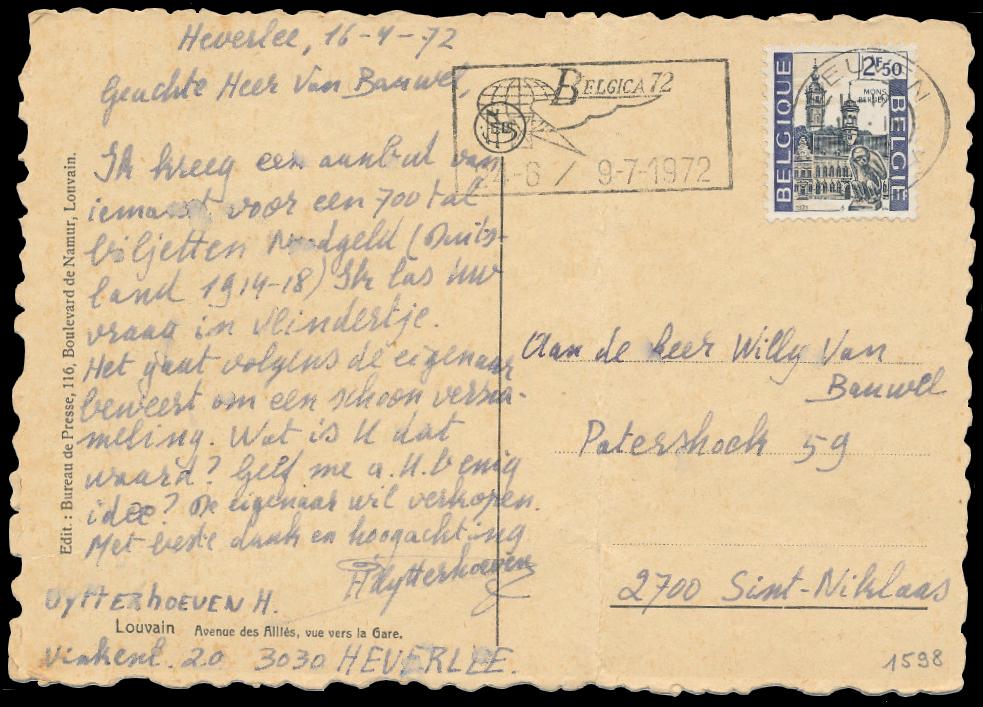 Heverlee, 16-4-72
Geachte Heer Van Bauwel,
Ik kreeg een aanbut van
iemant voor een 700 tal
biljetten Noodgeld (Duits-
land 1914-18) Ik las uw
vraag in Vlindertje.
Het gaat volgens de eigenaar
beweert om een schoon verza-
meling. Wat is U dat
waard? Geef me a.U.b enig
idee? De eigenaar wil verkopen.
Met beste dank en hoogachting
HUytterhoeven
UYTTERHOEVEN H.
Louvain Avenue des Alliés, vue vers la Gare.
Vinkenl. 20 3030 HEVERLEE.
Edit.: Bureau de Presse, 116, Boulevard de Namur, Louvain.
BELGICA 72
-6 / 9-7-1972
LEUVEN
BELGIQUE
2F50
MONS
BERGEN
BELGIË
Aan de heer Willy Van
Bauwel
Patershoek 59
2700 Sint-Niklaas
1598